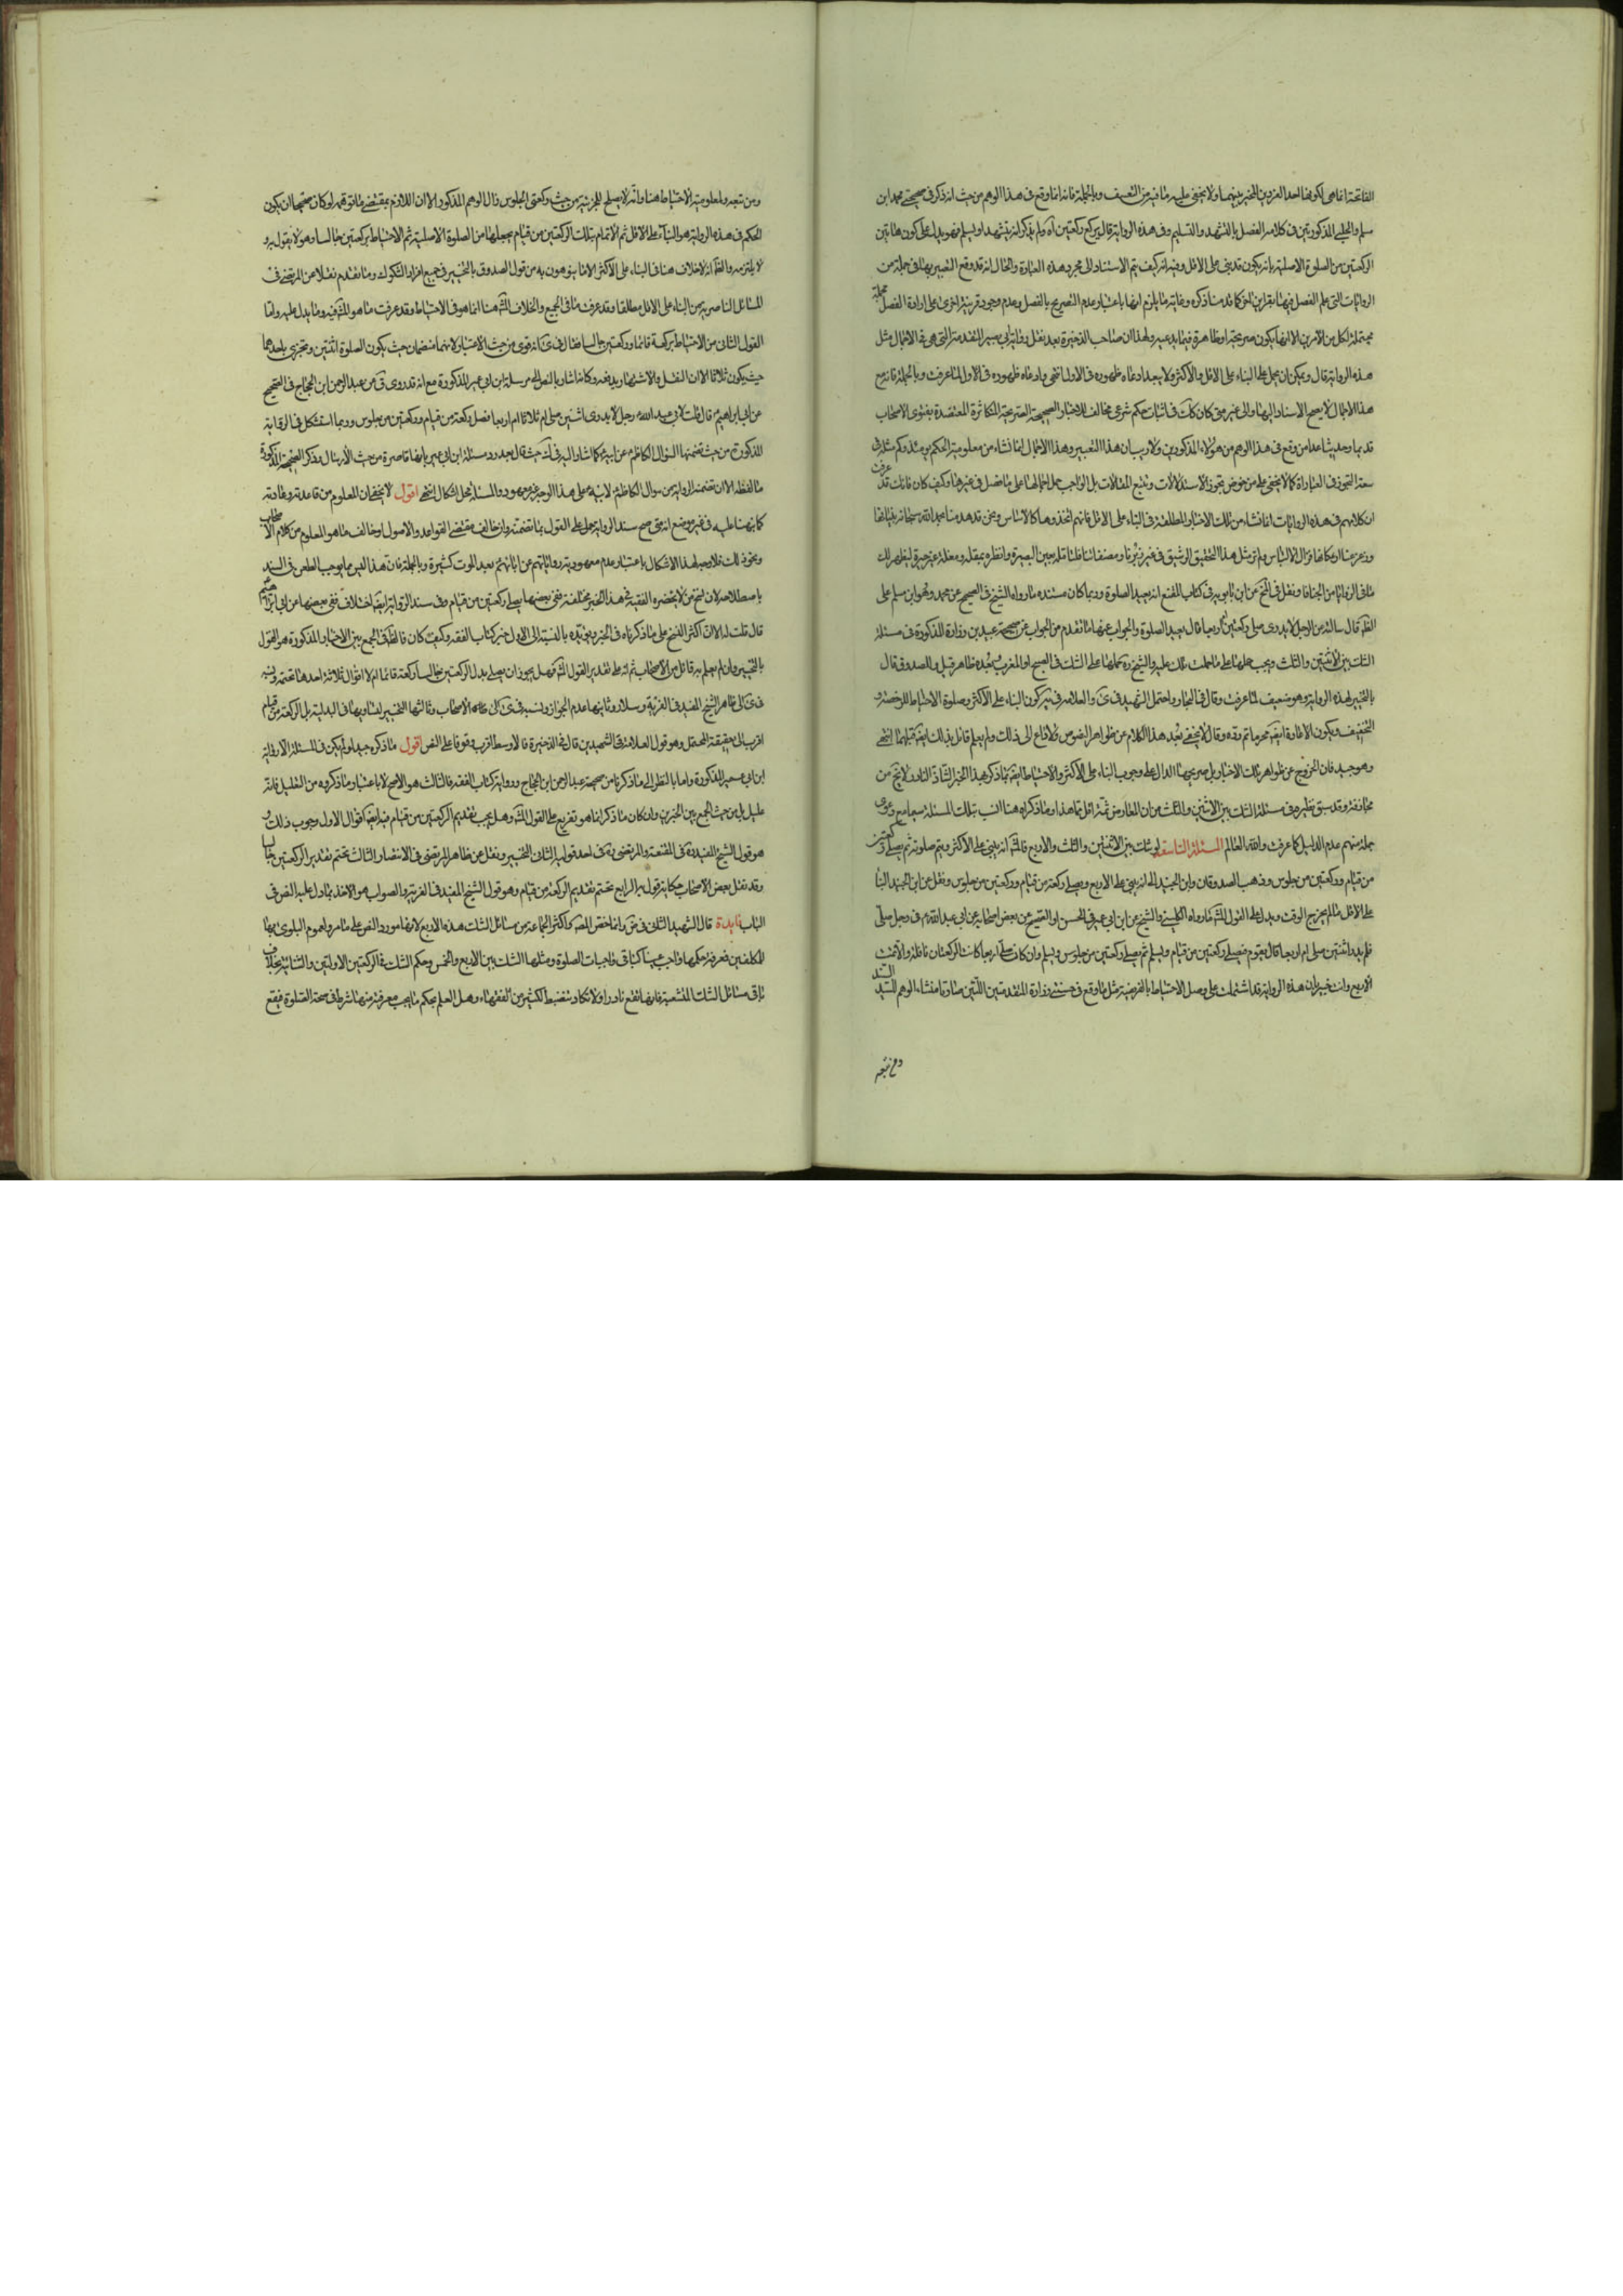 الفاتحة انما هي لكونها احد الفردين المخير بينهما ولا يخفى عليه ما فيه من التعسف وبالجملة فانه انما وقع في هذا الوهم من حيث انه ذكر في صحيحتي محمد ابن
مسلم والحلبي المذكورتين في كلامه الفصل بالتشهد والتسليم وفي هذه الرواية قال يركع ركعتين آه ولم يذكر انه يتشهد او يسلم فهو يدل على كون هاتين
الركعتين من الصلوة الاصلية بان يكون قد بنى على الاقل وفيه انه كيف يتم الاستناد الى مجرد هذه العبارة والحال انه قد وقع التعبير بها في جملة من
الروايات التي علم الفصل فيها بقراين اخر كما قدمنا ذكره وغاية ما يلزم انها باعتبار عدم التصريح بالفصل وعدم وجود قرينة اخرى على ارادة الفصل مجملة
محتملة لكل من الامرين لا انها يكون صريحة او ظاهرة فيما يدعيه ولهذا ان صاحب الذخيرة بعد نقل رواية ابي بصير المتقدمة التي هي في الاجمال مثل
هذه الرواية قال ويمكن ان يحمل على البناء على الاقل والاكثر ولا يبعد ادعاء ظهوره في الاول انتهى وادعاء ظهوره في الاول لما عرفت وبالجملة فانه مع
هذا الاجمال لا يصح الاستناد اليها والى غيرها متى كان كذلك في اثبات حكم شرعي مخالف للاخبار الصحيحة الصريحة المتكاثرة المعتضدة بفتوى الاصحاب
قديما وحديثا عدا من وقع في هذا الوهم من هؤلاء المذكورين ولا ريب ان هذا التعبير وهذا الاجمال انما نشاء من معلومية الحكم يومئذ وكم مثله في
سعة التجوز في العبارات كما لا يخفى على من خوض بتجوز الاستدلالات وتتبع المقالات بل الواجب حمل اجمالها على ما فصل في غيرها وكيف كان فانك قد عرفت
ان كلامهم في هذه الروايات انما نشاء من تلك الاخبار المطلقة في البناء على الاقل فانهم اتخذوها كالاساس ونحن قد هدمنا بحمد الله سبحانه بنيانها
وزعزعنا اركانها فزال الالتباس ولم نر مثل هذا التحقيق الرشيق في غير زبرنا ومصنفاتنا فلتأمله بعين البصيرة وانظره بمقلة ومقلة غير حسيرة ليظهر لك
ما في الزوايا من الخفايا ونقل في المخ عن ابن بابويه في كتاب المقنع انه يعيد الصلوة وربما كان مستنده ما رواه الشيخ في الصحيح عن محمد وهو ابن مسلم على
الظ قال سالته عن الرجل لا يدري صلى ركعتين ام اربعا قال يعيد الصلوة والجواب عنها ما تقدم من الجواب عن صحيحة عبيد بن زرارة المذكورة في مسئلة
الشك بين الاثنتين والثلث ويجب حملها على ما حملت تلك عليه والشيخ ره حملها على الشك في الصبح او المغرب وبعده ظاهر قيل والصدوق قال
بالتخيير لهذه الرواية وهو ضعيف لما عرفت وقال في البحار واحتمل الشهيد في كرى والعلامة في يه كون البناء على الاكثر وصلوة الاحتياط للرخصة و
التخفيف ويكون الاعادة ايضا مجزية ثم رده وقال لا يخفى بعد هذا الكلام عن ظواهر النصوص بلا داع الى ذلك ولم يعلم قائل بذلك ايضا قبلهما انتهى
وهو جيد فان الخروج عن ظواهر تلك الاخبار بل صريحها الدال على وجوب البناء على الاكثر والاحتياط ايضا بما ذكر لهذا الخبر الشاذ النادر لا يخ من
مجازفة وقد سبق نظيره في مسئلة الشك بين الاثنتين والثلث
جملة منهم عدم الدليل كما عرفت والله العالم المسئلة التاسعة لو شك بين الاثنتين والثلث والاربع فالمش انه يبني على الاكثر ويتم صلوته ثم يصلي ركعتين
من قيام وركعتين من جلوس وذهب الصدوقان وابن الجنيد الى انه يبني على الاربع ويصلي ركعة من قيام وركعتين من جلوس ونقل عن ابن الجنيد البناء
على الاقل ما لم يخرج الوقت ويدل على القول المش ما رواه الكليني والشيخ عن ابن ابي عمير في الحسن او الصحيح عن بعض اصحابه عن ابي عبد الله ع في رجل صلى
فلم يدر اثنتين صلى ام ثلثا ام اربعا قال يقوم فيصلي ركعتين من قيام ويسلم ثم يصلي ركعتين من جلوس ويسلم وان كان صلى اربعا كانت الركعتان نافلة والا تمت
الاربع وانت خبير بان هذه الرواية قد اشتملت على وصل الاحتياط بالفريضة مثل ما وقع في حسنتي زرارة المتقدمتين اللتين صارتا منشاء الوهم للسيد السند
ومن تبعه
ومن تبعه ولمعلومية الاحتياط هنا وانه لا يصلح للجزئية من حيث ركعتي الجلوس زال الوهم المذكور الا ان اللازم بمقتضى ما توهمه لو كان صحيحا ان يكون
الحكم في هذه الرواية هو البناء على الاقل ثم الاتمام بتلك الركعتين من قيام بجعلها من الصلوة الاصلية ثم الاحتياط بركعتين جالسا وهو لا يقول به و
لا يلتزمه والظ انه لا خلاف هنا في البناء على الاكثر الا ما يتوهمونه من قول الصدوق بالتخيير في جميع افراد الشكوك وما تقدم نقلا عن المرتضى في
المسائل الناصرية من البناء على الاقل مطلقا وقد عرفت ما في الجميع والخلاف المش هنا انما هو في الاحتياط وقد عرفت ما هو المش فيه وما يدل عليه واما
القول الثاني من الاحتياط بركعة قائما وركعتين جالسا فقال في كرى انه قوي من حيث الاعتبار لانهما ينضمان حيث يكون الصلوة اثنتين ويجزي باحدهما
حيث يكون ثلاثا الا ان النقل والاشتهار يدفعه وكانه اشار بالنص الى مرسلة ابن ابي عمير المذكورة مع انه قد روى في يه عن عبد الرحمن ابن الحجاج في الصحيح
عن ابي ابراهيم ع قال قلت لابي عبد الله ع رجل لا يدري اثنتين صلى ام ثلاثا ام اربعا فصلى ركعة من قيام وركعتين من جلوس وربما استشكل في الرواية
المذكورة من حيث تضمنها السؤال الكاظم ع عن ابيه ع كما اشار اليه في ك حيث قال بعد رد مسئلة ابن ابي عمير بانها قاصرة من حيث الارسال وذكر الصحيحة المذكورة
ما لفظه الا ان تضمنه الرواية من سؤال الكاظم ع لابيه ع على هذا الوجه غير معهود والمسئلة محل اشكال انتهى اقول لا يخفى ان المعلوم من قاعدته وعادته
كما نبهنا عليه في غير موضع انه متى صح سند الرواية حمل على القول بما تضمنته وان خالف مقتضى القواعد والاصول او خالف ما هو المعلوم من كلام الاصحاب
ونحو ذلك فلا وجه لهذا الاشكال باعتبار عدم معهودية روايتهم عن ابائهم بعد الموت كثيرة وبالجملة فان هذا ليس مما يوجب الطعن في السند
باصطلاحه لان نسخ من لا يحضره الفقيه في هذا الخبر مختلفة ففي بعضها يصلي ركعتين من قيام وفي سند الرواية ايضا اختلاف ففي بعضها عن ابي ابراهيم
قال قلت له الا ان اكثر النسخ على ما ذكرناه في الخبر ويؤيده بالنسبة الى الاول خبر كتاب الفقه وكيف كان فالظ في الجمع بين الاخبار المذكورة هو القول
بالتخيير وان لم يعلم به قائل من الاصحاب ثم انه على تقدير القول المش فهل يجوز ان يصلي بدل الركعتين جالسا ركعة قائما ام لا اقوال ثلاثة احدها تحتمه ونسبه
في كرى الى ظاهر الشيخ المفيد في الغرية وسلار وثانيها عدم الجواز ونسبه في كرى الى عامة الاصحاب وثالثها التخيير لتساويهما في البدلية بل الركعة من قيام
اقرب الى حقيقة المحتمل وهو قول العلامة والشهيدين قال في الذخيرة فالاوسط اقرب وقوفا على النص اقول ما ذكره جيد لو لم يكن في المسئلة الا رواية
ابن ابي عمير المذكورة واما بالنظر الى ما ذكرنا من صحيحة عبد الرحمن ابن الحجاج ورواية كتاب الفقه فالثالث هو الاصح لا باعتبار ما ذكروه من التعليل فانه
عليل بل من حيث الجمع بين الخبرين وان كان ما ذكرنا انما هو تفريع على القول المش وهل يجب تقديم الركعتين من قيام فيه ايضا اقوال الاول وجوب ذلك و
هو قول الشيخ المفيد ره في المقنعة والمرتضى ره في احد قوليه الثاني التخيير ونقل عن ظاهر المرتضى في الانتصار الثالث تحتم تقدير الركعتين جالسا
وقد نقل بعض الاصحاب حكاية قول به الرابع تحتم تقديم الركعة من قيام وهو قول الشيخ المفيد في الغرية والصواب هو الاخذ بما دل عليه النص في
الباب فايدة قال الشهيد الثاني في ض وانما خص المص كاكثر الجماعة من مسائل الشك هذه الاربع لانها مورد النص على ما مر ولعموم البلوى بها
للمكلفين فمعرفة حكمها واجب عينا كباقي واجبات الصلوة ومثلها الشك بين الاربع والخمس وحكم الشك في الركعتين الاوليين والثنائية بخلاف
باقي مسائل الشك المتشعبة فانها تقع نادرا ولا تكاد تنضبط الكثير من الفقهاء وهل العلم بحكم ما يجب معرفته منها شرط في صحة الصلوة فيقع